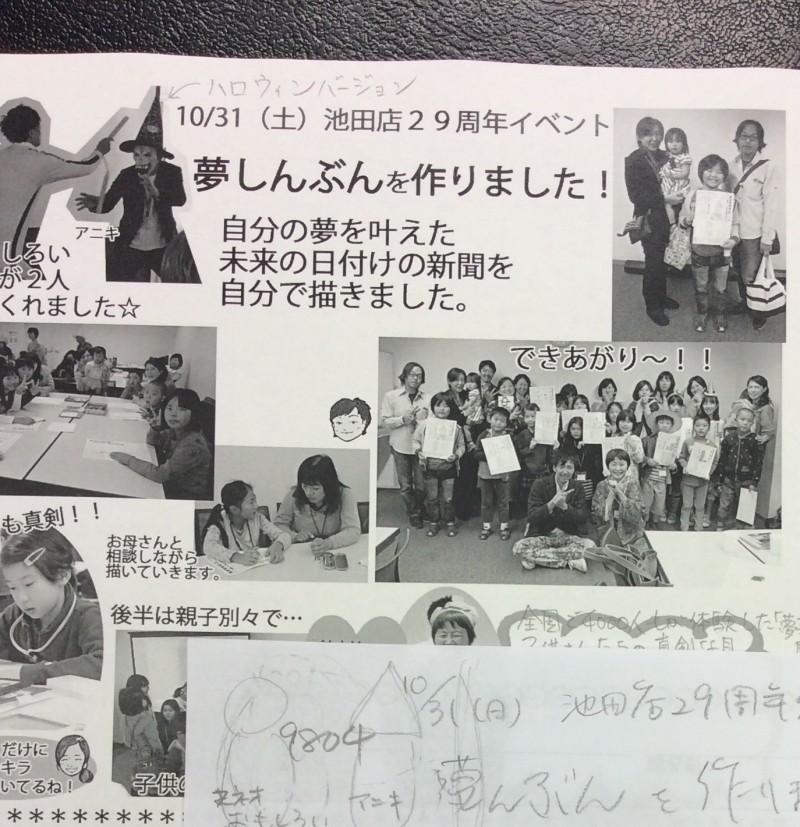 ハロウィンバージョン
10/31（土）池田店２９周年イベント
夢しんぶんを作りました！
アニキ
しろい
が２人
くれました☆
自分の夢を叶えた
未来の日付けの新聞を
自分で描きました。
できあがり～！！
も真剣！！
お母さんと
相談しながら
描いていきます。
後半は親子別々で…
全国で4000人しか体験した「夢
だけに
キラ
いてるね！
子供の
＊＊＊＊＊＊＊＊
10/31(日) 池田店29周年
9804
夢んぶんを作りま
アニキ
おもしろい